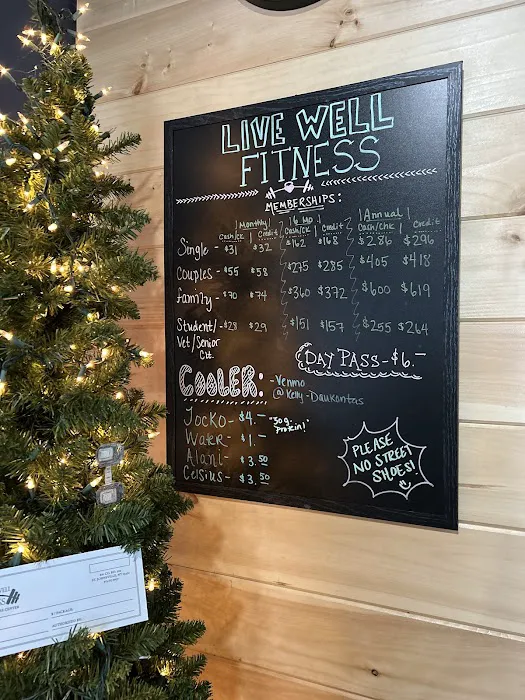 LIVE WELL
FITNESS
MEMBERSHIPS:
Monthly 6 mo. Annual
Cash/CK Credit Cash/CK Credit Cash/Chk Credit
Single - $31 $32 $162 $168 $286 $296
Couples - $55 $58 $275 $285 $405 $418
family - $70 $74 $360 $372 $600 $619
Student/ - $28 $29 $151 $157 $255 $264
Vet/Senior
Cit.
DAY PASS - $6.—
COOLER: - Venmo
@Kelly-Daukontas
JOCKO - $4.— "30g protein!"
Water - $1.—
Alani - $3.50
Celsius - $3.50
PLEASE
NO STREET
SHOES!